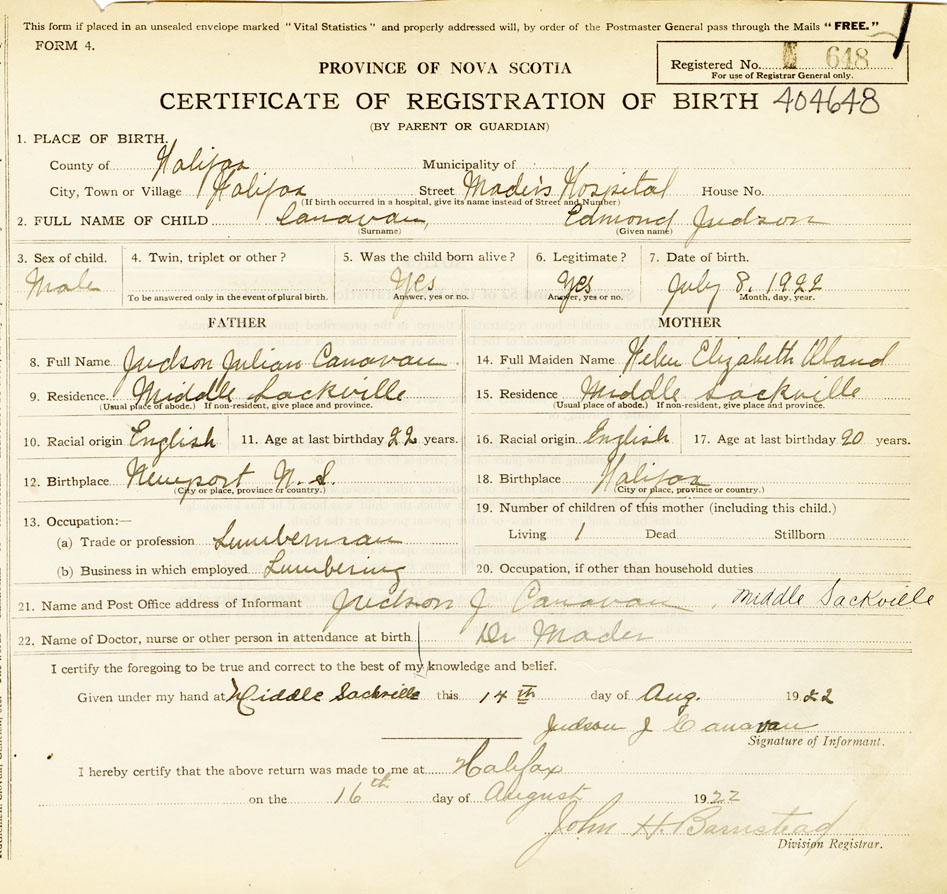 This form if placed in an unsealed envelope marked "Vital Statistics" and properly addressed will, by order of the Postmaster General pass through the Mails "FREE."
FORM 4.
Registered No. 648
For use of Registrar General only.
PROVINCE OF NOVA SCOTIA
CERTIFICATE OF REGISTRATION OF BIRTH 404648
(BY PARENT OR GUARDIAN)
1. PLACE OF BIRTH.
County of Halifax Municipality of
City, Town or Village Halifax Street Mader's Hospital House No.
(If birth occurred in a hospital, give its name instead of Street and Number)
2. FULL NAME OF CHILD Canavan, Edmond Judson
(Surname) (Given name)
3. Sex of child. 4. Twin, triplet or other? 5. Was the child born alive? 6. Legitimate? 7. Date of birth.
Male Yes Yes July 8, 1922
To be answered only in the event of plural birth. Answer, yes or no. Answer, yes or no. Month, day, year.
FATHER MOTHER
8. Full Name Judson Julian Canavan 14. Full Maiden Name Helen Elizabeth
9. Residence Middle Sackville 15. Residence Middle Sackville
(Usual place of abode.) If non-resident, give place and province. (Usual place of abode.) If non-resident, give place and province.
10. Racial origin English 11. Age at last birthday 22 years. 16. Racial origin English 17. Age at last birthday 20 years.
12. Birthplace Newport N.S. 18. Birthplace Halifax
(City or place, province or country.) (City or place, province or country.)
13. Occupation:— 19. Number of children of this mother (including this child.)
(a) Trade or profession Lumberman Living 1 Dead Stillborn
(b) Business in which employed Lumbering 20. Occupation, if other than household duties
21. Name and Post Office address of Informant Judson J Canavan, Middle Sackville
22. Name of Doctor, nurse or other person in attendance at birth Dr Mader
I certify the foregoing to be true and correct to the best of my knowledge and belief.
Given under my hand at Middle Sackville this 14th day of Aug. 1922
Judson J Canavan
Signature of Informant.
I hereby certify that the above return was made to me at Halifax
on the 16th day of August 1922
John H. Barnstead
Division Registrar.